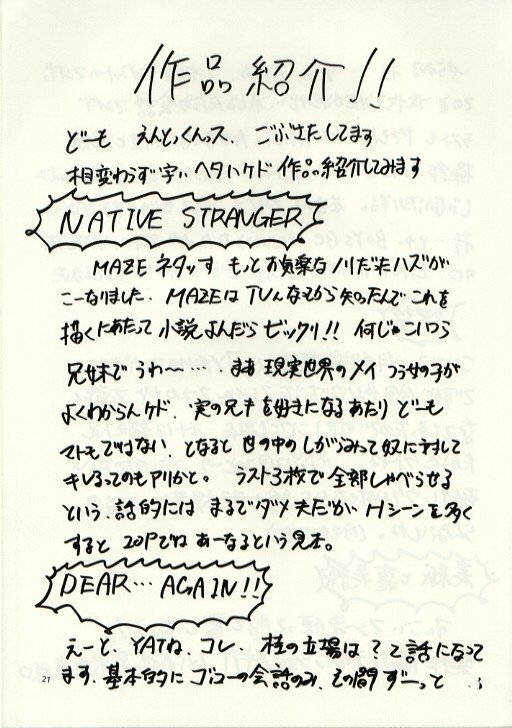 作品紹介!!
どーも えんどっくんっス、ごぶさたしてます
相変わらず字ぃヘタいケド作品紹介してみます
NATIVE STRANGER
MAZEネタっす もっとお気楽なノリだったハズが
こーなりました、MAZEはTVんなってから知ったんでこれを
描くにあたって小説よんだらビックリ!! 何じゃこいつら
兄妹でうわ〜…、まあ現実世界のメイっつう女の子が
よくわからんケド、実の兄キを好きになるあたりどーも
マトモではない、となると世の中のしがらみって奴に対して
キレるってのもアリかと。 ラスト3枚で全部しゃべらせる
という、話的にはまるでダメ夫だが Hシーンを多く
すると20Pではあーなるという見本。
DEAR… AGAIN!!
えーと、YATね、コレ、桂の立場は?って話になって
ます、基本的にゴローの会話のみ、その間ずーっと
21